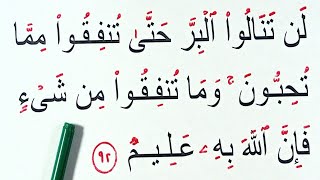 لَن تَنَالُوا۟ ٱلْبِرَّ حَتَّىٰ تُنفِقُوا۟ مِمَّا
تُحِبُّونَ ۚ وَمَا تُنفِقُوا۟ مِن شَىْءٍ
فَإِنَّ ٱللَّهَ بِهِۦ عَلِيمٌ ٩٢